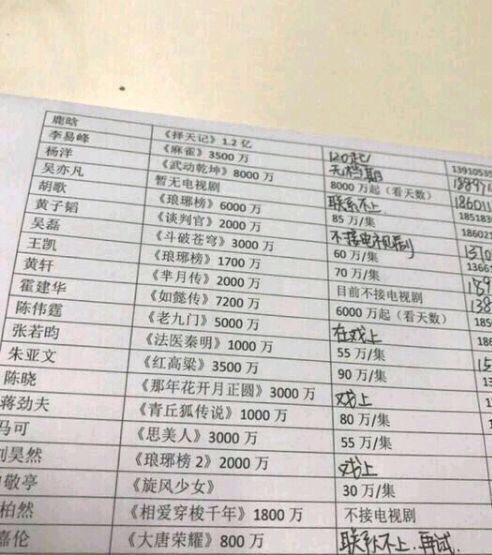 鹿晗 《择天记》1.2 亿 120起/ 13910535
李易峰 《麻雀》3500 万 无档期
杨洋 《武动乾坤》8000 万 8000 万起（看天数） 186011
吴亦凡 暂无电视剧 联系不上 185183
胡歌 《琅琊榜》6000 万 85 万/集 18602
黄子韬 《谈判官》2000 万 不接电视剧
吴磊 《斗破苍穹》3000 万 60 万/集 1366
王凯 《琅琊榜》1700 万 70 万/集 189
黄轩 《芈月传》2000 万 目前不接电视剧 138
霍建华 《如懿传》7200 万 6000 万起（看天数） 186
陈伟霆 《老九门》5000 万 在戏上
张若昀 《法医秦明》1000 万 55 万/集
朱亚文 《红高粱》3500 万 90 万/集
陈晓 《那年花开月正圆》3000 万 戏上
蒋劲夫 《青丘狐传说》1000 万 80 万/集
马可 《思美人》3000 万 55 万/集
刘昊然 《琅琊榜 2》2000 万 戏上
敬亭 《旋风少女》 30 万/集
柏然 《相爱穿梭千年》1800 万 不接电视剧
嘉伦 《大唐荣耀》800 万 联系不上.再试